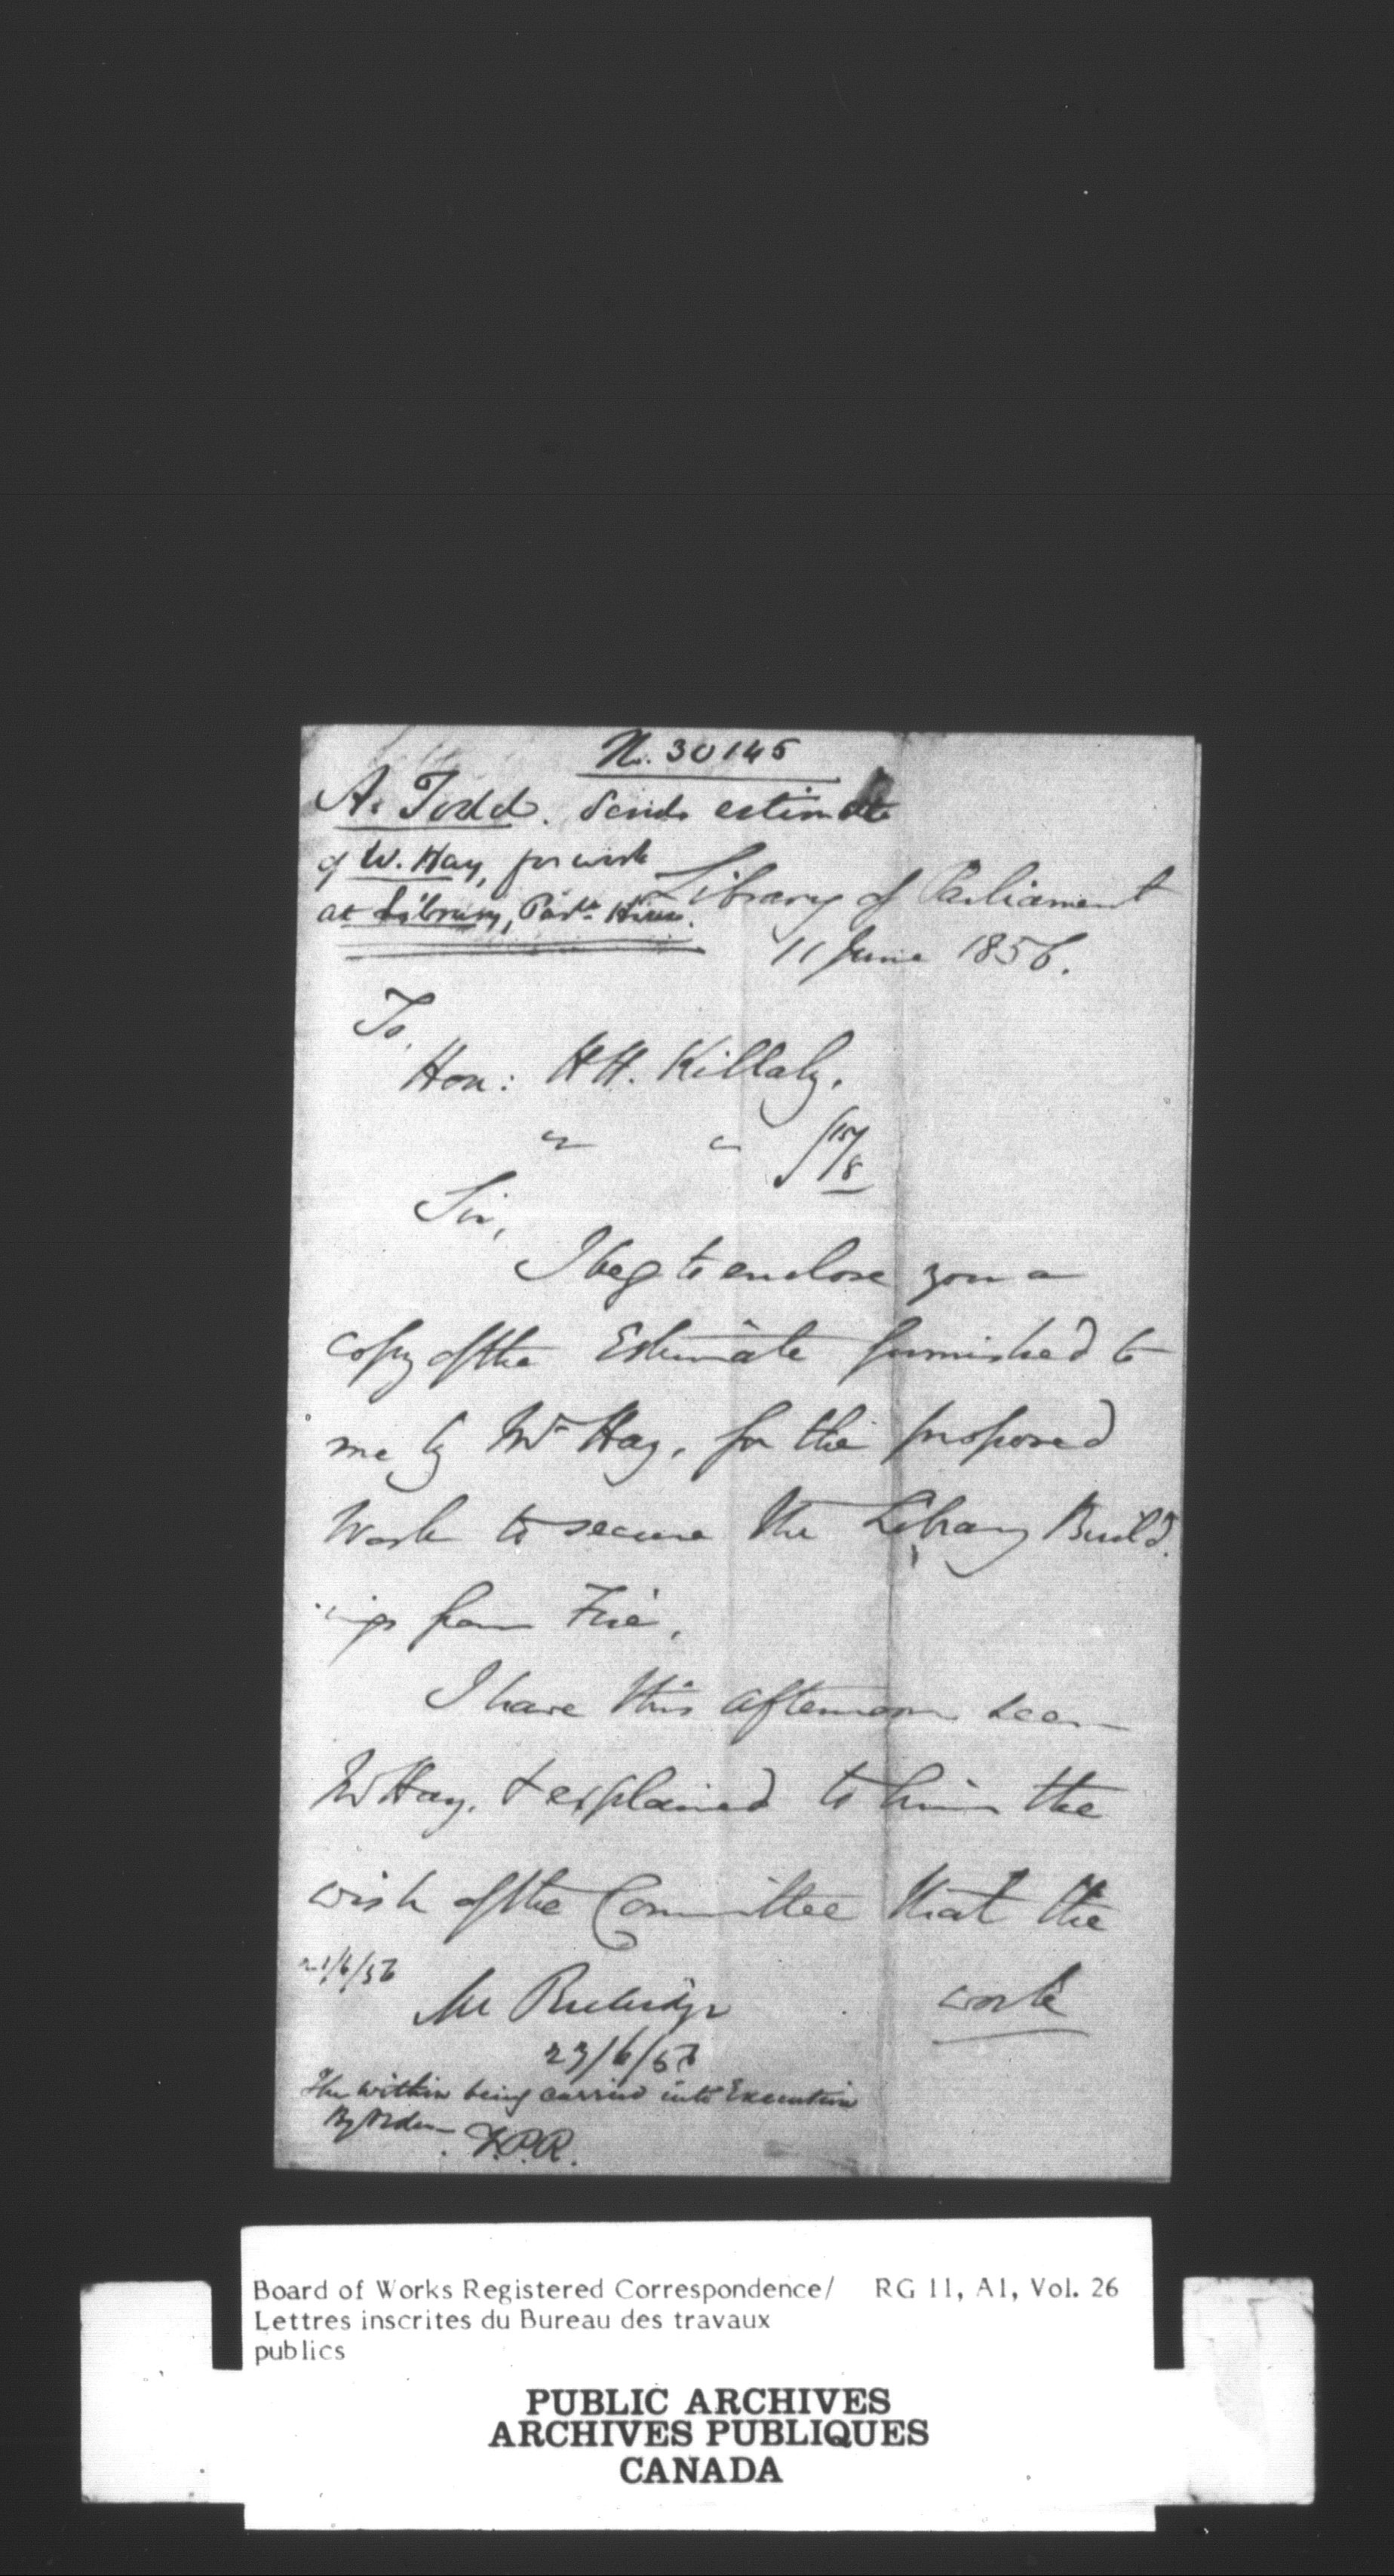 No. 30145
A. Todd. Sends estimate
of W. Hay, for work
at Library, Parlt House.
Library of Parliament
11 June 1856.
To,
Hon: HH. Killaly.
" "
Sir,
I beg to enclose you a
copy of the Estimate furnished to
me by Mr Hay, for the proposed
Work to secure the Library Build
ings from Fire.
I have this afternoon seen
Mr Hay, & explained to him the
wish of the Committee that the
work
21/6/56
Mr Rubidge
23/6/56
The within being carried into Execution
By Order F.P.R.
Board of Works Registered Correspondence/ RG 11, A1, Vol. 26
Lettres inscrites du Bureau des travaux
publics
PUBLIC ARCHIVES
ARCHIVES PUBLIQUES
CANADA